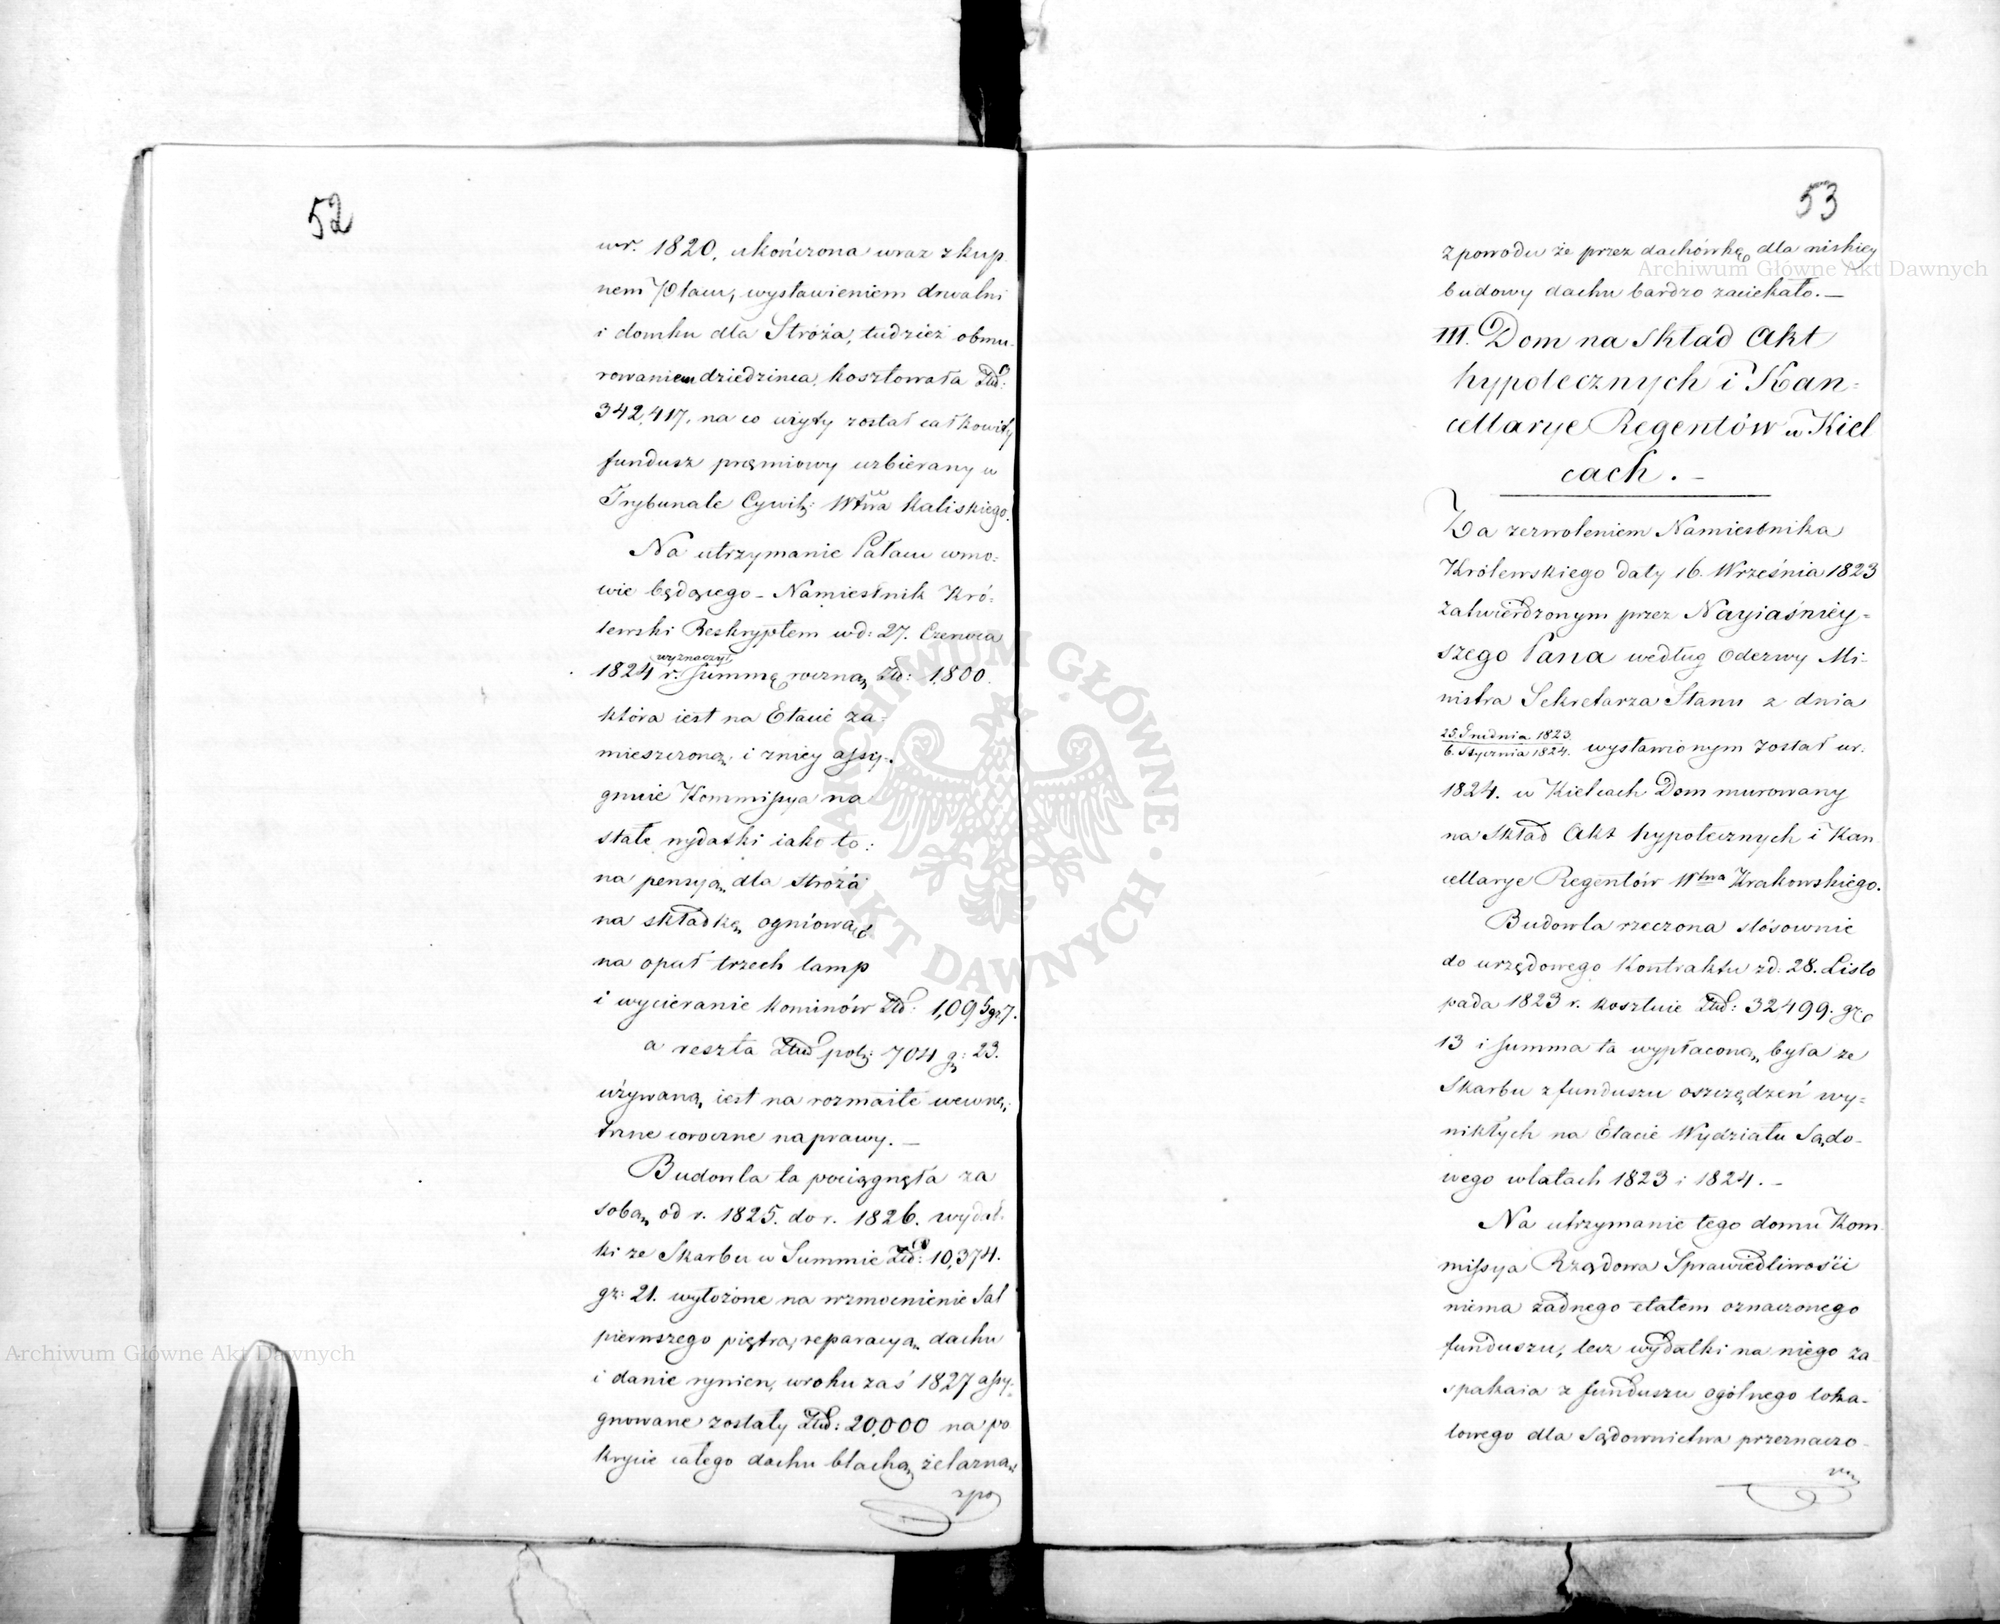 52
wr. 1820, ukończona wraz z kup
nem Placu, wystawieniem drwalni
i domku dla Stróża, tudzież obmu-
rowaniem dziedzinca, kosztowała Złd:
342,417, na co użyty został całkowity
fundusz premiowy uzbierany w
Trybunale Cywil: Wtwa Kaliskiego.
Na utrzymanie Pałacu wmo-
wie będącego - Namiestnik Kró-
lewski Reskryptem wd: 27. Czerwca
wyznaczył
1824 r. summę roczną Złd: 1,800.
która iest na Etacie za-
mieszczoną, i zniey assy-
gnuie Kommissya na
stałe wydatki iako to:
na pensyą dla Stróża
na składkę ogniową
na opał trzech lamp
i wycieranie kominów Złd: 1,095 gr 7.
a reszta Złd pol: 704 g: 23.
używaną iest na rozmaite wewnę-
trzne coroczne naprawy. —
Budowla ta pociągnęła za
sobą od r. 1825. do r. 1826. wydat-
ki ze Skarbu w Summie Złd: 10,374.
gr: 21. wyłożone na wzmocnienie Sal
pierwszego piętra, reparacyą dachu
i danie rynien, wroku zaś 1827 assy-
gnowane zostały Złd: 20,000 na po
krycie całego dachu blachą żelazną
zpo
53
zpowodu że przez dachówkę dla niskiey
budowy dachu bardzo zaciekało. —
III. Dom na skład Akt
hypotecznych i Kan-
cellarye Regentów w Kiel
cach. —
Za zezwoleniem Namiestnika
Królewskiego daty 16. Września 1823
zatwierdzonym przez Nayiaśniey-
szego Pana według Odezwy Mi-
nistra Sekretarza Stanu z dnia
25. Grudnia 1823.
6. Stycznia 1824. wystawionym został w r.
1824. w Kielcach Dom murowany
na Skład Akt hypotecznych i Kan
cellarye Regentów Wtwa Krakowskiego.
Budowla rzeczona stósownie
do urzędowego Kontraktu zd: 28. Listo
pada 1823 r. kosztuie Złd: 32499. gr.
13 i summa ta wypłaconą była ze
Skarbu z funduszu oszczędzeń wy-
nikłych na Etacie Wydziału Sądo-
wego wlatach 1823 i 1824. —
Na utrzymanie tego domu Kom-
missya Rządowa Sprawiedliwości
niema żadnego etatem oznaczonego
funduszu, lecz wydatki na niego za-
spakaia z funduszu ogólnego loka-
lowego dla Sądownictwa przeznaczo-
Archiwum Główne Akt Dawnych
Archiwum Główne Akt Dawnych
ARCHIWUM GŁÓWNE · AKT DAWNYCH ·